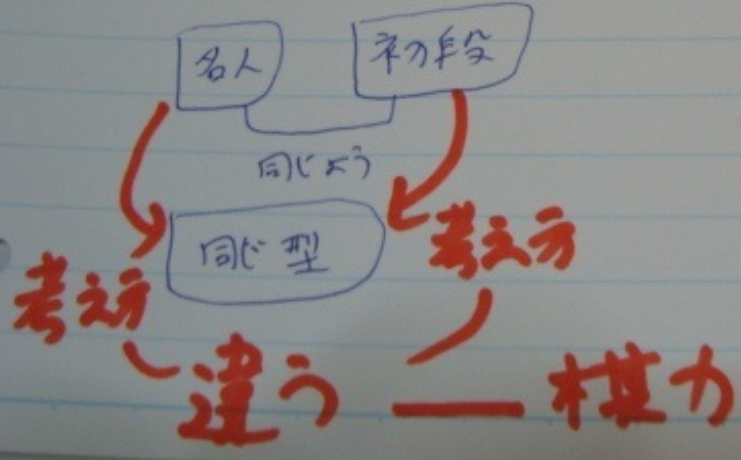 名人 初段
同じよう
同じ型 考え方
考え方
違う 棋力